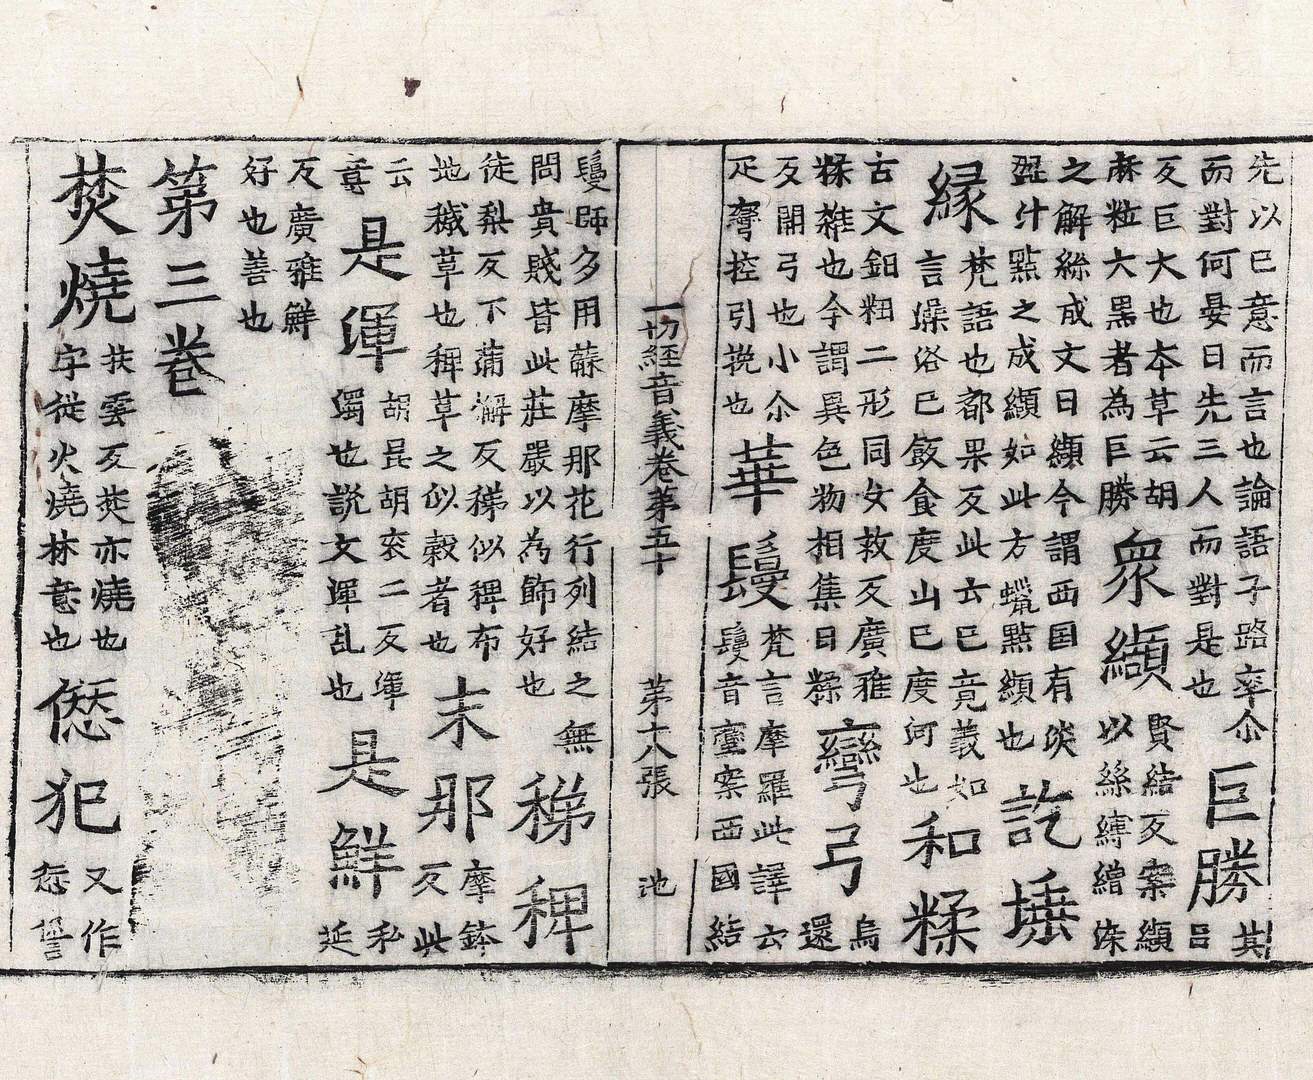 先以已意而言也論語子路率尒
而對何晏曰先三人而對是也
巨勝
其
吕
反巨大也本草云胡
麻粒大黑者為巨勝
衆纈
賢結反案纈
以絲縛繒染
之解絲成文曰纈今謂西国有淡
澀汁點之成纈如此方蠟點纈也
訖埵
縁
梵語也都果反此云已竟義如
言澡浴已飯食度山已度何也
和糅
古文鈕粈二形同女救反廣雅
糅雜也今謂異色物相集曰糅
彎弓
烏
還
反開弓也小尒
疋彎控引挽也
華鬘
梵言摩羅此譯云
鬘音蠻案西國結
一切經音義卷第五十 第十八張 池
鬘師多用蘇摩那花行列結之無
問貴賤皆此莊嚴以為飾好也
稊稗
徒梨反下蒲懈反稊似稗布
地穢草也稗草之似穀者也
末那
摩鉢
反此
云
意
是渾
胡昆胡衮二反渾
濁也說文渾乱也
是鮮
私
延
反廣雅鮮
好也善也
第三卷
焚燒
扶雲反焚亦燒也
字從火燒林意也
僁犯
又作
愆諐